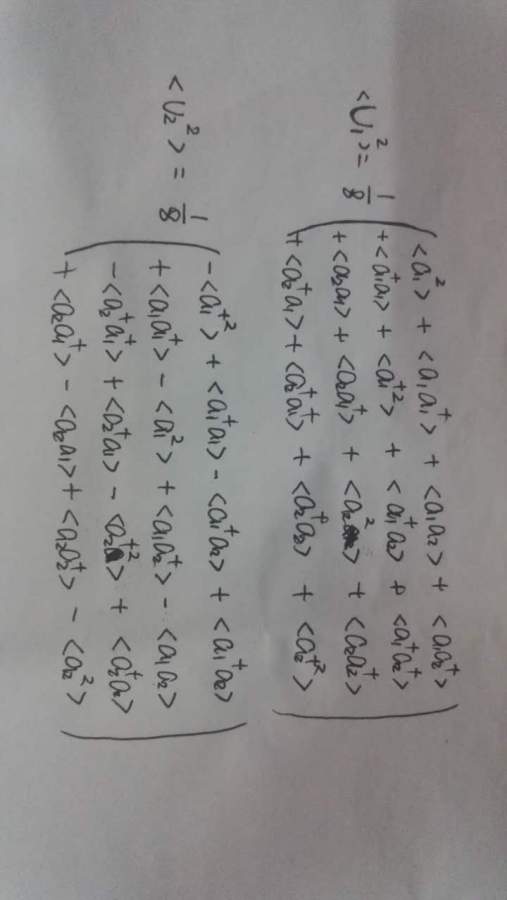 <U₁²> = 1/8 ( <a₁²> + <a₁a₁⁺> + <a₁a₂> + <a₁a₂⁺>
+ <a₁⁺a₁> + <a₁⁺²> + <a₁⁺a₂> + <a₁⁺a₂⁺>
+ <a₂a₁> + <a₂a₁⁺> + <a₂²> + <a₂a₂⁺>
+ <a₂⁺a₁> + <a₂⁺a₁⁺> + <a₂⁺a₂> + <a₂⁺²> )
<U₂²> = 1/8 ( - <a₁⁺²> + <a₁⁺a₁> - <a₁⁺a₂> + <a₁⁺a₂>
+ <a₁a₁⁺> - <a₁²> + <a₁a₂⁺> - <a₁a₂>
- <a₂⁺a₁⁺> + <a₂⁺a₁> - <a₂⁺²> + <a₂⁺a₂>
+ <a₂a₁⁺> - <a₂a₁> + <a₂a₂⁺> - <a₂²> )